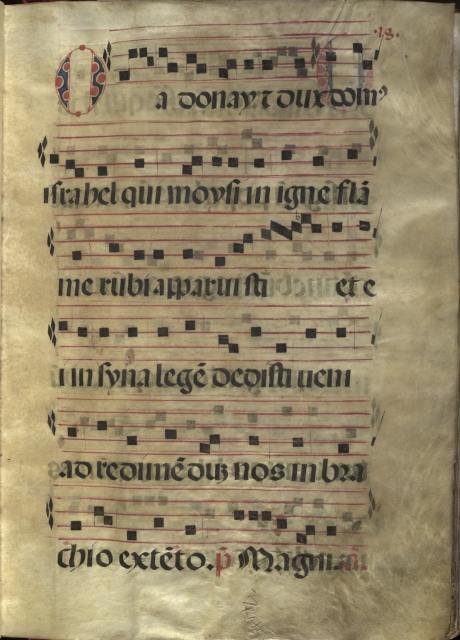 ·18·
O a donay τ dux dom⁹
israhel qui moysi in igne flã
me rubi apparuisti et e
i in syna legẽ dedisti ueni
ad redimẽdũ nos in bra
chio extẽto. p̃ Magni